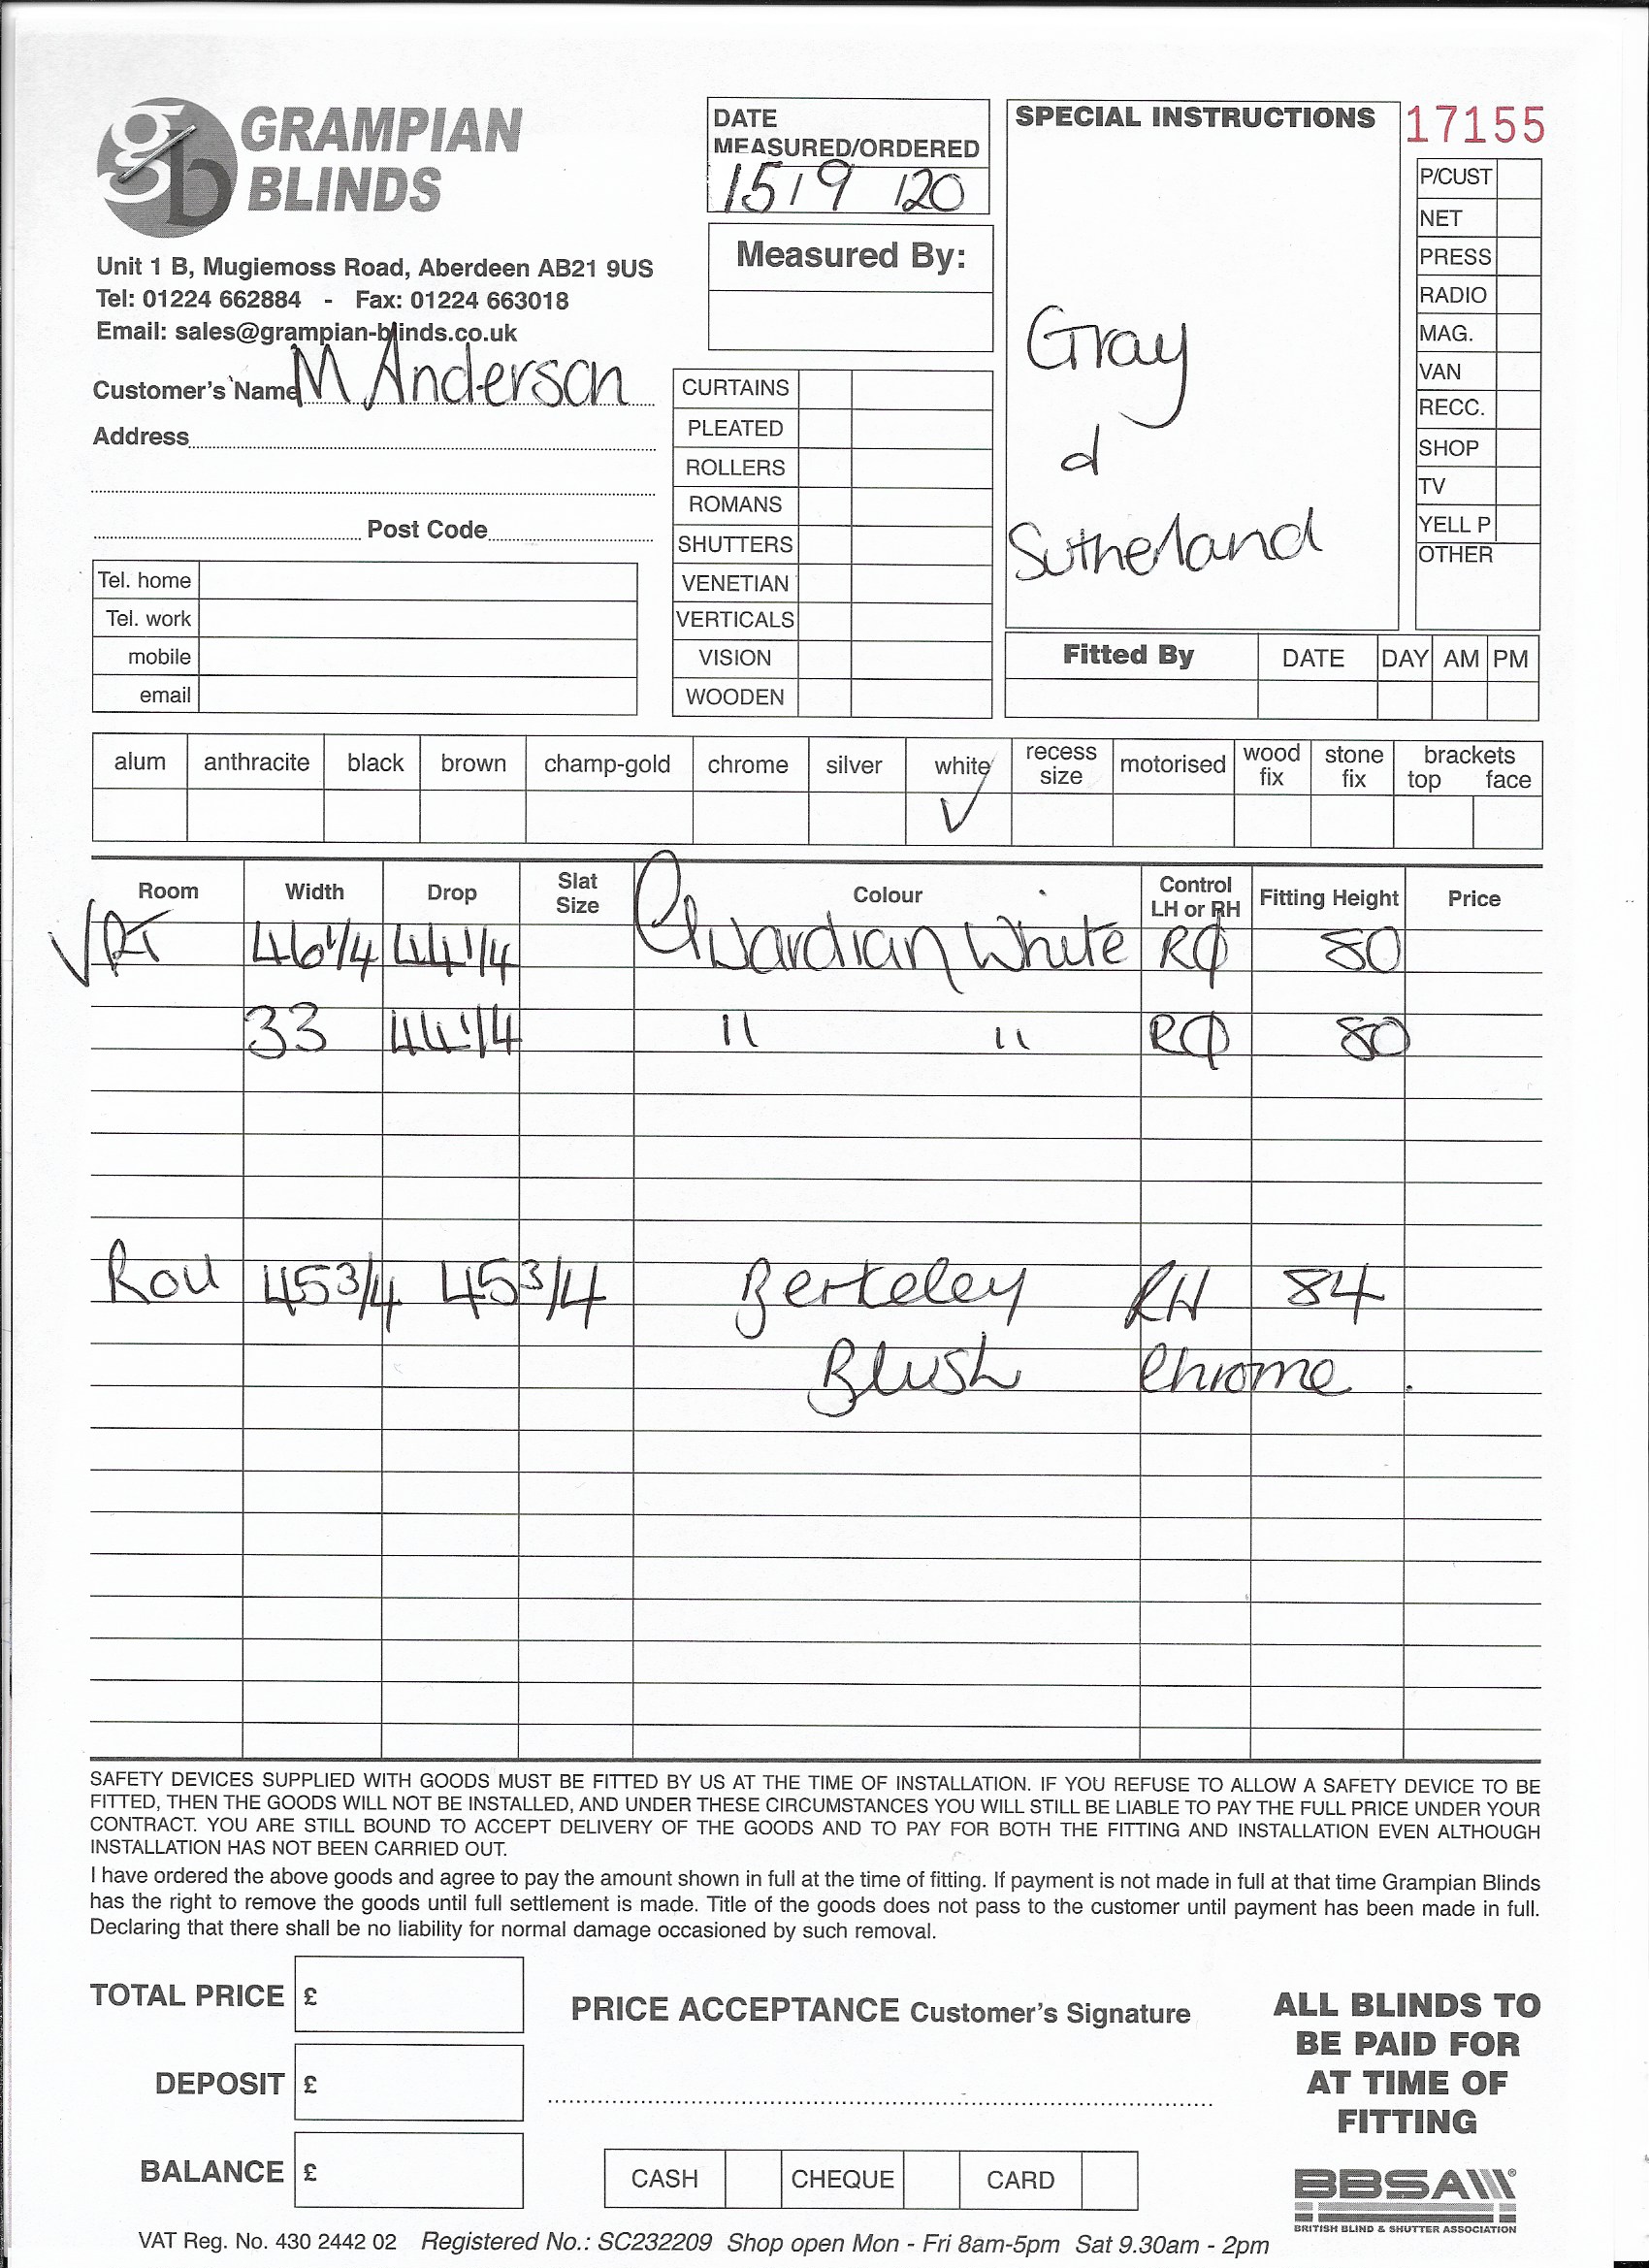 GRAMPIAN
BLINDS
gb
Unit 1 B, Mugiemoss Road, Aberdeen AB21 9US
Tel: 01224 662884 - Fax: 01224 663018
Email: sales@grampian-blinds.co.uk
Customer's Name M Anderson
Address
Post Code
Tel. home
Tel. work
mobile
email
DATE
MEASURED/ORDERED
15/9/20
Measured By:
CURTAINS
PLEATED
ROLLERS
ROMANS
SHUTTERS
VENETIAN
VERTICALS
VISION
WOODEN
SPECIAL INSTRUCTIONS
Gray
d
Sutherland
17155
P/CUST
NET
PRESS
RADIO
MAG.
VAN
RECC.
SHOP
TV
YELL P
OTHER
Fitted By DATE DAY AM PM
alum anthracite black brown champ-gold chrome silver white recess size motorised wood fix stone fix brackets top face
✓
Room Width Drop Slat Size Colour Control LH or RH Fitting Height Price
VRT 46 1/4 44 1/4 Guardian White RØ 80
33 44 1/4 " " RØ 80
Roll 45 3/4 45 3/4 Berkeley RH 84
Blush Chrome
SAFETY DEVICES SUPPLIED WITH GOODS MUST BE FITTED BY US AT THE TIME OF INSTALLATION. IF YOU REFUSE TO ALLOW A SAFETY DEVICE TO BE
FITTED, THEN THE GOODS WILL NOT BE INSTALLED, AND UNDER THESE CIRCUMSTANCES YOU WILL STILL BE LIABLE TO PAY THE FULL PRICE UNDER YOUR
CONTRACT. YOU ARE STILL BOUND TO ACCEPT DELIVERY OF THE GOODS AND TO PAY FOR BOTH THE FITTING AND INSTALLATION EVEN ALTHOUGH
INSTALLATION HAS NOT BEEN CARRIED OUT.
I have ordered the above goods and agree to pay the amount shown in full at the time of fitting. If payment is not made in full at that time Grampian Blinds
has the right to remove the goods until full settlement is made. Title of the goods does not pass to the customer until payment has been made in full.
Declaring that there shall be no liability for normal damage occasioned by such removal.
TOTAL PRICE £
DEPOSIT £
BALANCE £
PRICE ACCEPTANCE Customer's Signature
CASH CHEQUE CARD
ALL BLINDS TO
BE PAID FOR
AT TIME OF
FITTING
BBSA®
BRITISH BLIND & SHUTTER ASSOCIATION
VAT Reg. No. 430 2442 02 Registered No.: SC232209 Shop open Mon - Fri 8am-5pm Sat 9.30am - 2pm